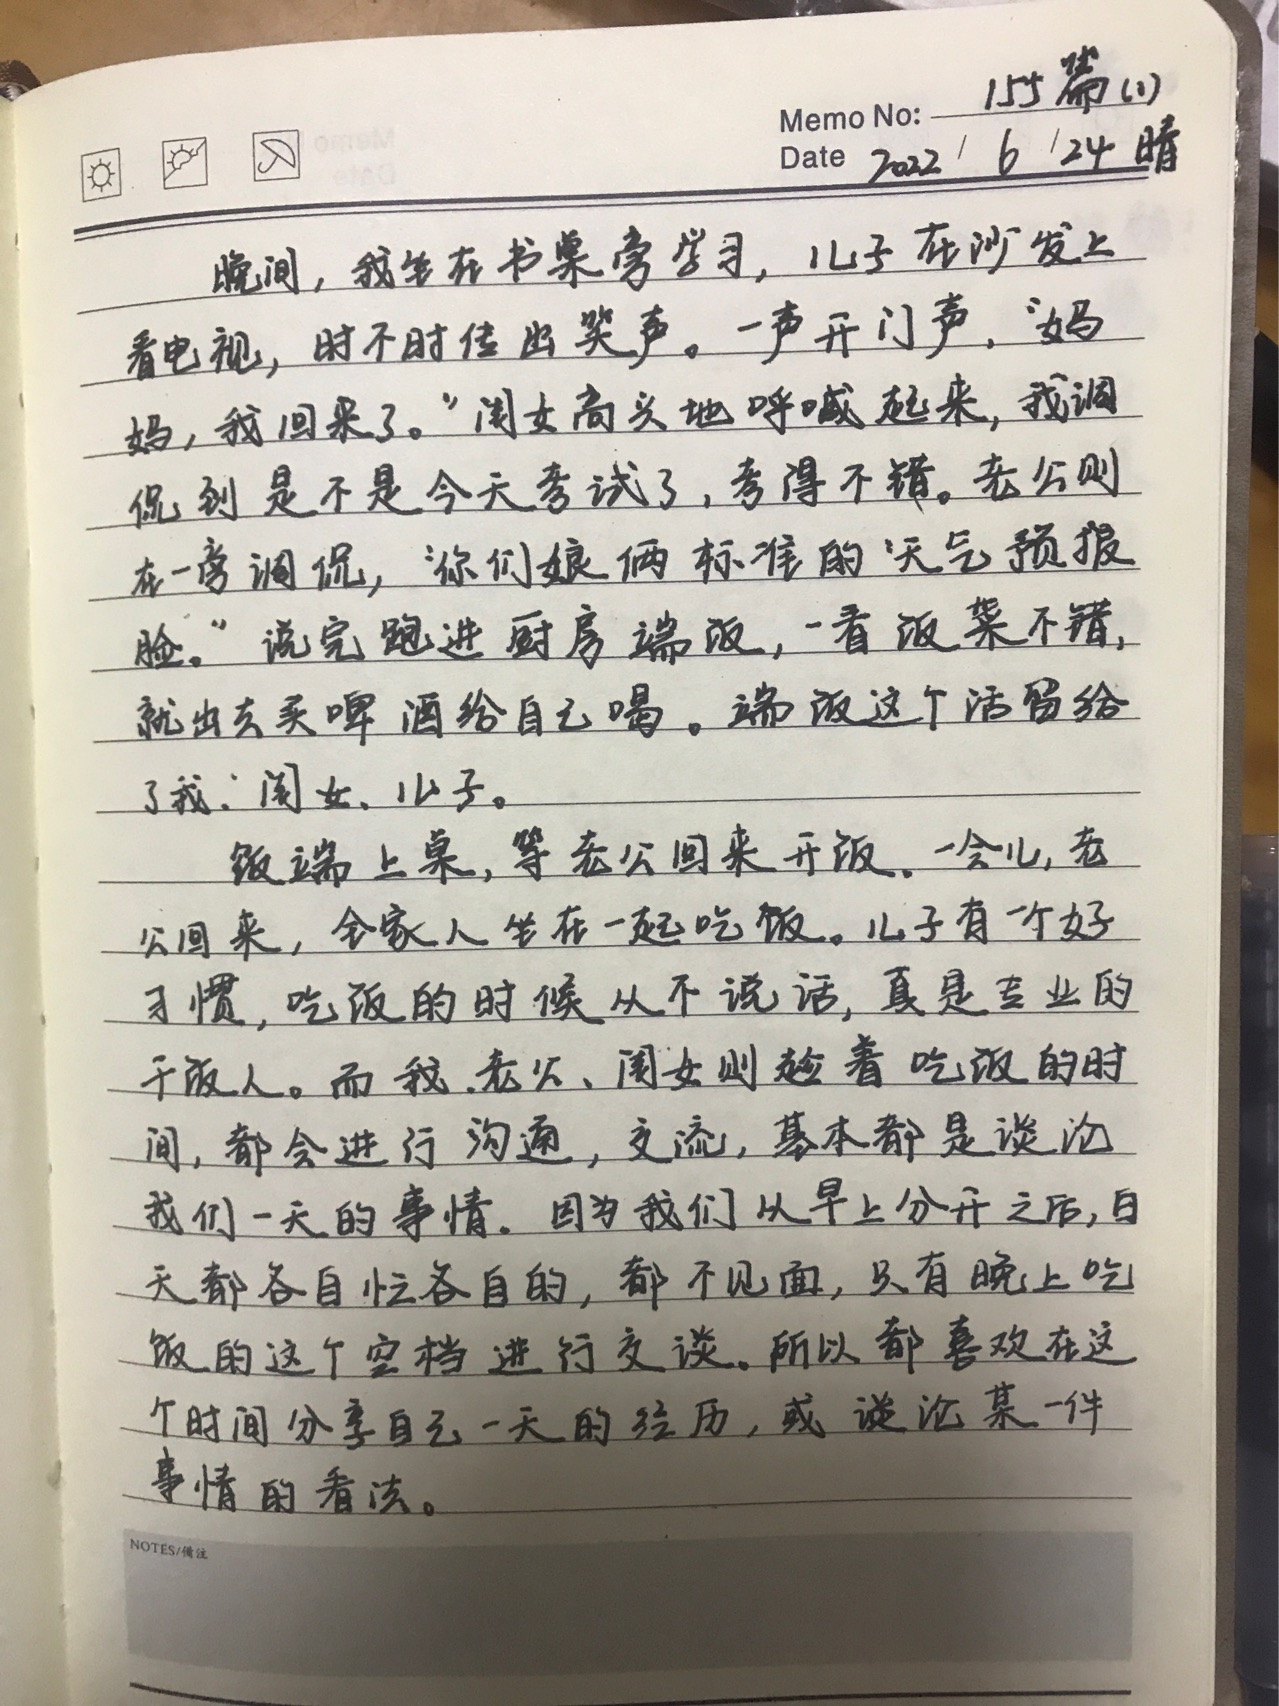 Memo No: 155篇(1)
Date 2022/6/24 晴
晚间,我坐在书桌旁学习,儿子在沙发上
看电视,时不时传出笑声。一声开门声,“妈
妈,我回来了。”闺女高兴地呼喊起来,我调
侃到是不是今天考试了,考得不错。老公则
在一旁调侃,“你们娘俩标准的‘天气预报
脸。”说完跑进厨房端饭,一看饭菜不错,
就出去买啤酒给自己喝。端饭这个活留给
了我、闺女、儿子。
饭端上桌,等老公回来开饭。一会儿,老
公回来,全家人坐在一起吃饭。儿子有一个好
习惯,吃饭的时候从不说话,真是专业的
干饭人。而我、老公、闺女则趁着吃饭的时
间,都会进行沟通,交流,基本都是谈论
我们一天的事情。因为我们从早上分开之后,白
天都各自忙各自的,都不见面,只有晚上吃
饭的这个空档进行交谈。所以都喜欢在这
个时间分享自己一天的经历,或谈论某一件
事情的看法。
NOTES/備注